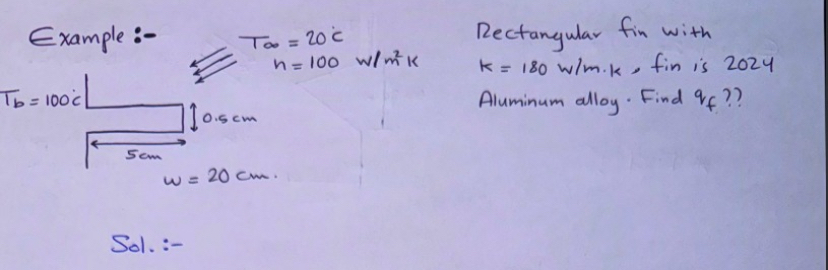 Example :-
T∞ = 20 c̊
h = 100 w/m² K
Tb = 100 c̊
0.5 cm
5 cm
w = 20 cm.
Rectangular fin with
K = 180 w/m.k, fin is 2024
Aluminum alloy. Find qf ??
Sol. :-